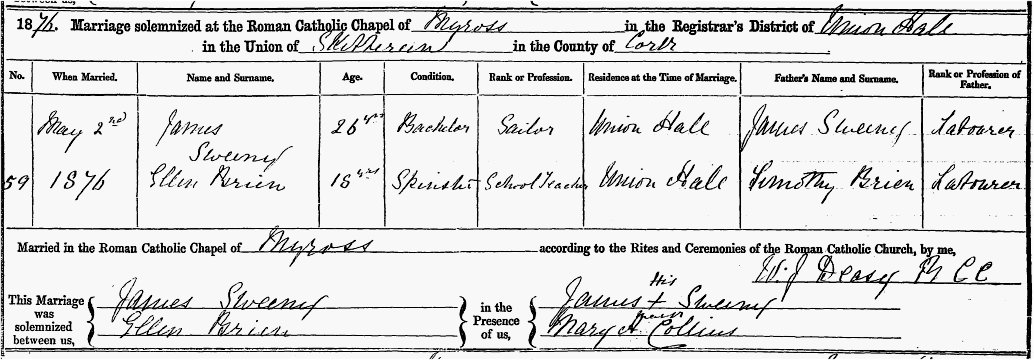 1876. Marriage solemnized at the Roman Catholic Chapel of Myross in the Registrar's District of Union Hall
in the Union of Skibbereen in the County of Cork
No. When Married. Name and Surname. Age. Condition. Rank or Profession. Residence at the Time of Marriage. Father's Name and Surname. Rank or Profession of Father.
May 2nd James Sweeny 26 yrs Bachelor Sailor Union Hall James Sweeny Labourer
59 1876 Ellen Brien 18 yrs Spinster School Teacher Union Hall Timothy Brien Labourer
Married in the Roman Catholic Chapel of Myross according to the Rites and Ceremonies of the Roman Catholic Church, by me,
W. J Deasy R C C
This Marriage was solemnized between us, James Sweeny Ellen Brien in the Presence of us, James His + mark Sweeny Mary A Collins